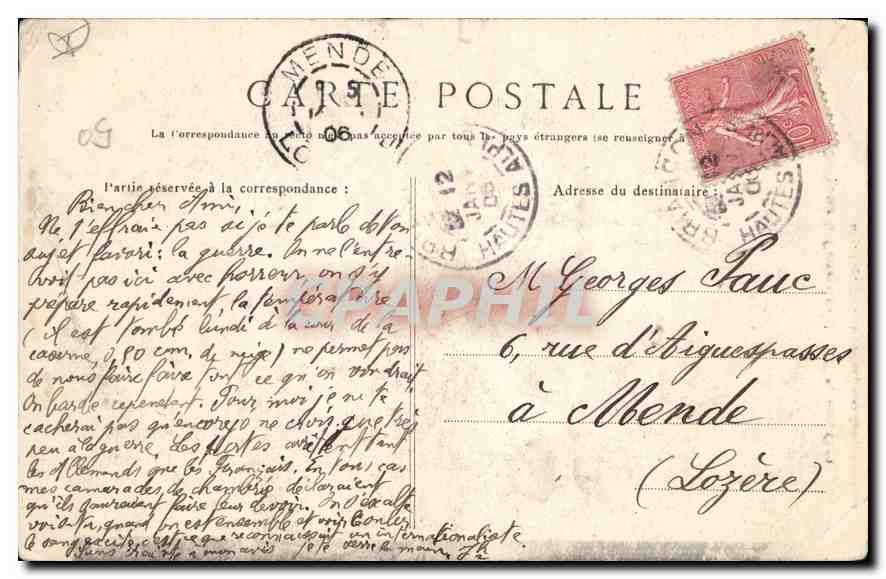 MENDE
06
LOZÈRE
CARTE POSTALE
La Correspondance au recto n'est pas acceptée par tous les pays étrangers (se renseigner à
Partie réservée à la correspondance :
Adresse du destinataire :
BRIANÇON
12
JANV
06
HAUTES ALPES
Bien cher Ami,
Ne t'effraie pas si je te parle de ton
sujet favori : la guerre. On ne l'entre-
voit pas ici avec horreur on s'y
prépare rapidement la température
( il est tombé lundi à la cour de la
caserne 0,80 cm. de neige) ne permet pas
de nous faire faire tout ce qu'on voudrait
On barde cependant. Pour moi je ne te
cacherai pas qu'encore je ne crois que très
peu à la guerre. Les
les Allemands que les Français. En tous cas
mes camarades de chambrée déclaraient
qu'ils sauraient faire leur devoir. On s'exalte
vois-tu, quand on est ensemble et voir couler
le sang excite, est-ce que reconnaissait un internationaliste.
à mon avis je te serre la main
M. Georges Pauc
6, rue d'Aiguespasses
à Mende
(Lozère)
CPAPHIL